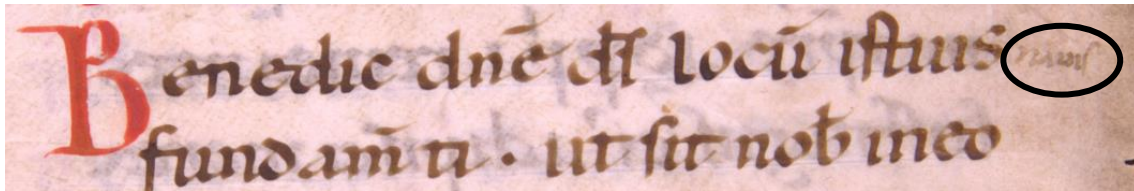 Benedic dnē dſ̄ locū iſtius nauiſ
fundam̄ti · ut ſit nob̄ ineo